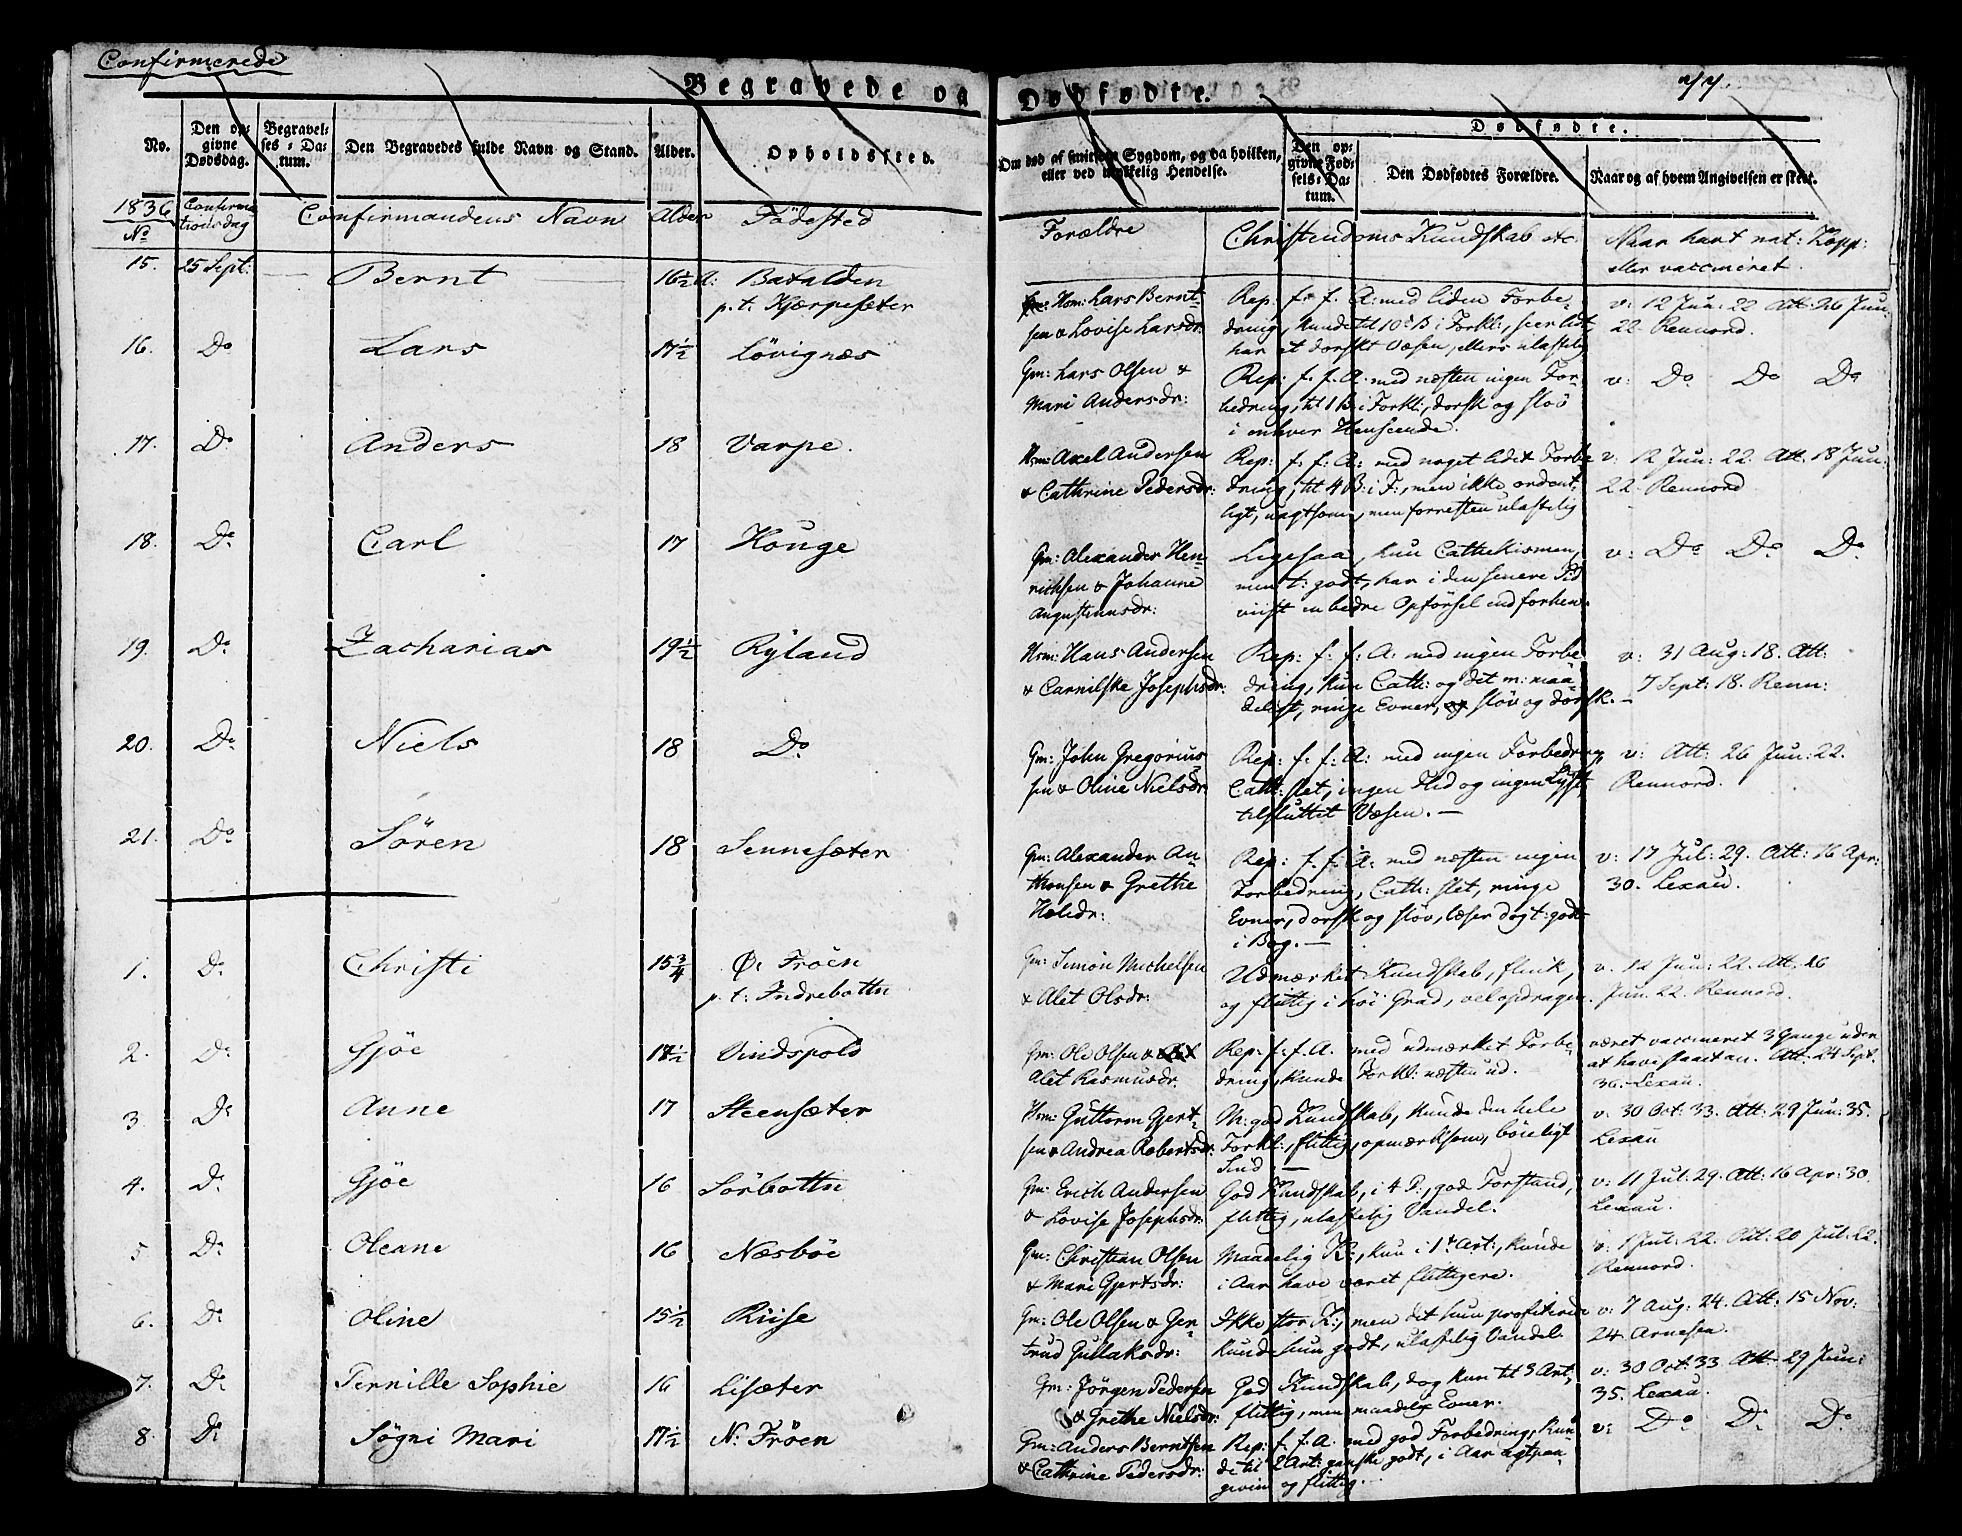 Confirmerede
77.
Begravede og Dødfødte.
No.
Den op-
givne
Dødsdag.
Begravel-
ses-Da-
tum.
Den Begravedes fulde Navn og Stand.
Alder.
Opholdssted.
Om død af smitsom Sygdom, og da hvilken,
eller ved ulykkelig Hendelse.
Dødfødte.
Den op-
givne Fød-
sels-Da-
tum.
Den Dødfødtes Forældre.
Naar og af hvem Angivelsen er skeet.
1836
No
Confirma
tionsdag
Confirmandens Navn
Alder
Födested
Forældre
Christendoms Kundskab etc.
Naar havt nat: Kopp:
eller vaccineret.
15. 25 Sept: Bernt 16½ A: Batalden
p. t: Kjærpesæter
Hom: Lars Bernt-
sen & Lovise Larsdr:
Rep: f. f. A: med liden Forbe-
dring, kunde til 10de B: i Forkl:, seer lidt,
har et dorskt Væsen, ellers ulastelig
v: 12 Jun: 22 Att: 26 Jun:
22. Rennord.
16. Do Lars 17½ Lövignæs
Gm: Lars Olsen &
Mari Andersdr:
Rep: f. f. A: med næsten ingen For-
bedring, til 1 B: i Forkl:, dorsk og slöv
i enhver Henseende.
v: Do Do Do
17. Do Anders 18 Varpe.
Hsm: Axel Andersen
& Cathrine Pedersdr:
Rep: f: f: A: med noget lidet Forbe
dring, til 4 B: i F:, men ikke ordent-
ligt, uagtsom, men forresten ulastelig
v: 12 Jun: 22. Att: 18 Jun:
22. Rennord
18. Do Carl 17 Houge
Gm: Alexander Hen-
richsen & Johanne
Augustinusdr:
Ligesaa, kun Cathekismen,
men t: godt, har i den senere Tid
viist en bedre Opförsel end forhen.
v: Do Do Do
19. Do Zacharias 19½ Ryland
Hsm: Hans Andersen
& Carnilske Josephsdr:
Rep: f: f: A: med ingen Forbe
dring, kun Cath: og det m: maa-
deligt, ringe Evner, slöv og dorsk.
v: 31 Aug: 18. Att:
7 Sept: 18. Renn:
20. Do Niels 18 Do
Gm: John Gregorius
sen & Oline Nielsdr:
Rep: f. f. A: med ingen Forbedring,
Cath: slet, ingen Flid og ingen Lyst
tilsluttet Væsen.
v: Att: 26 Jun: 22.
Rennord.
21. Do Sören 18 Sennesæter
Gm: Alexander An-
thonsen & Grethe
Rep: f. f. A: med næsten ingen
Forbedring, Cath: slet, ringe
Evner, dorsk og slöv, læser dogt: godt
i Bog.
v: 17 Jul: 29. Att: 16 Apr:
30. Lexau.
1. Do Christi 15¾ Ø: Fröen
p. t: Indrebottn
Gm: Simon Michelsen
& Alet Olsdr:
Udmærket Kundskab, flink,
og flittig i höi Grad, vel opdragen.
v. 12 Jun: 22. Att. 26
Jun. 22. Rennord.
2. Do Gjöe 17½ Vindspold
Gm: Ole Olsen &
Alet Rasmusdr.
Rep: f: f. A. med udmærket Forbe-
dring, kunde Forkl: næsten ud.
været vaccineret 3 Gange uden
at have slaaet an. Att: 24 Sept.
36. Lexau.
3. Do Anne 17 Steensæter
Hsm: Guttorm Gjert-
sen & Andrea Robertsdr:
M: god Kundskab, kunde den hele
Forkl:, flittig, opmærksom, böieligt
Sind
v: 30 Oct: 33. Att: 29 Jun: 35.
Lexau
4. Do Gjöe 16 Sörbottn
Gm: Erich Andersen
& Lovise Josephsdr:
God Kundskab, i 4 P:, god Forstand,
flittig, ulastelig Vandel.
v: 11 Jul: 29. Att: 16 Apr: 30.
Lexau.
5. Do Oleane 16 Næsböe
Gm: Christian Olsen
& Mari Gjertsdr:
Maadelig K:, kun i 1t Art:, kunde
i Aar have været flittigere.
v: 1 Jul: 22. Att: 20 Jul: 22.
Rennord.
6. Do Oline 15½ Riise
Gm: Ole Olsen & Ger-
trud Gullaksdr:
Ikke stor K:, men det hun profiterede
kunde hun godt, ulastelig Vandel.
v: 7 Aug: 24. Att: 15 Nov:
24. Arnesen.
7. Do Pernille Sophie 16 Lisæter
Gm: Jörgen Pedersen
& Grethe Nielsdr:
God Kundskab, dog kun til 3 Art:,
flittig, men maadelige Evner.
v: 30 Oct: 33 Att: 29 Jun:
35. Lexau.
8. Do Sögni Mari 17½ N: Fröen
Gm: Anders Berntsen
& Cathrine Pedersdr:
Rep: f. f. A. med god Forbedring, kun-
de til 2 Art: ganske godt, i Aar agtpaa-
given og flittig.
v: Do Do Do